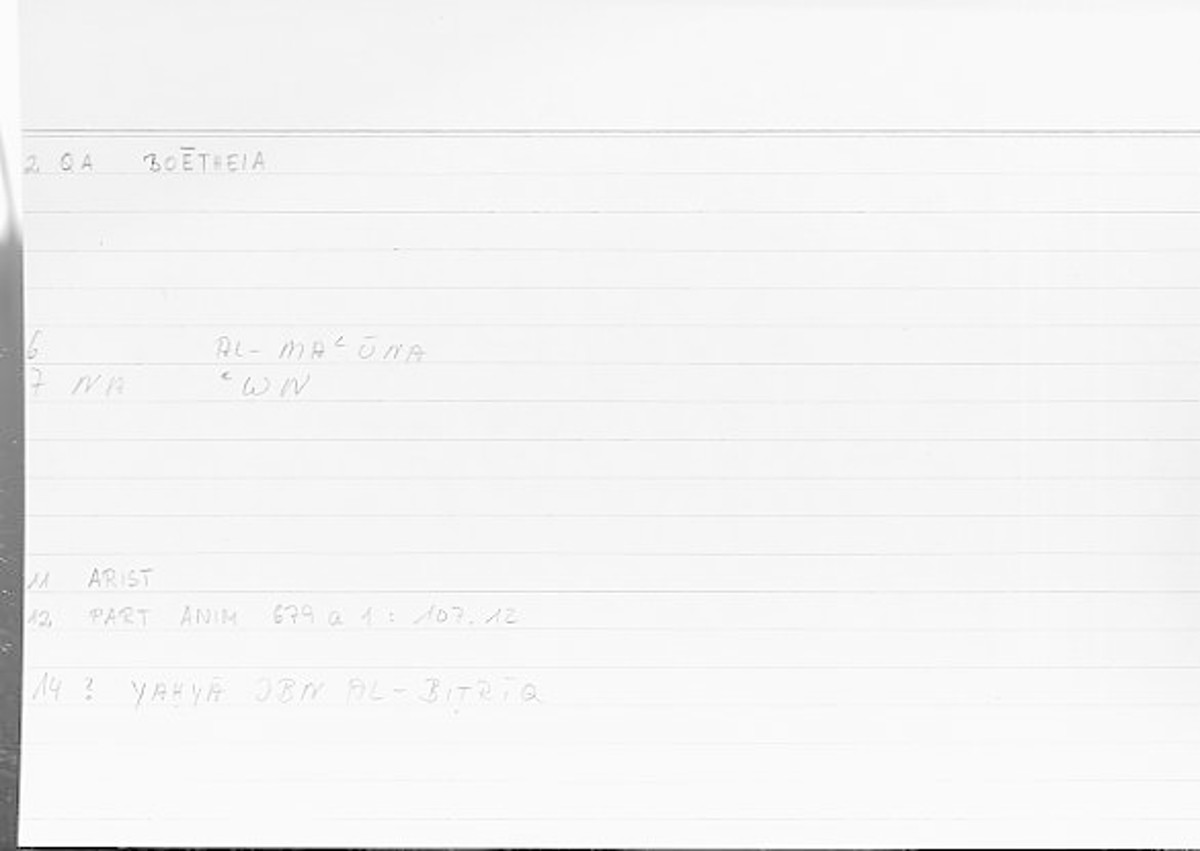 2 QA BOĒTHEIA
6 AL- MAʿŪNA
7 NA ʿWN
11 ARIST
12 PART ANIM 679 a 1 : 107.12
14 ? YAḤYĀ IBN AL-BIṬRĪQ